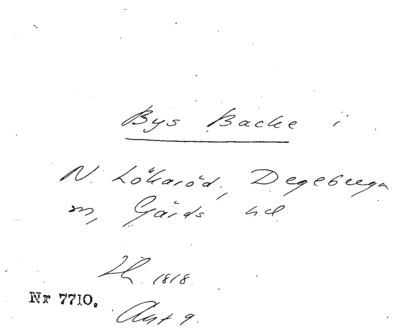 Bys Backe i
N. Lökaröd, Degeberga
m, Gärds hd
1818.
Nr 7710.
Akt 9.